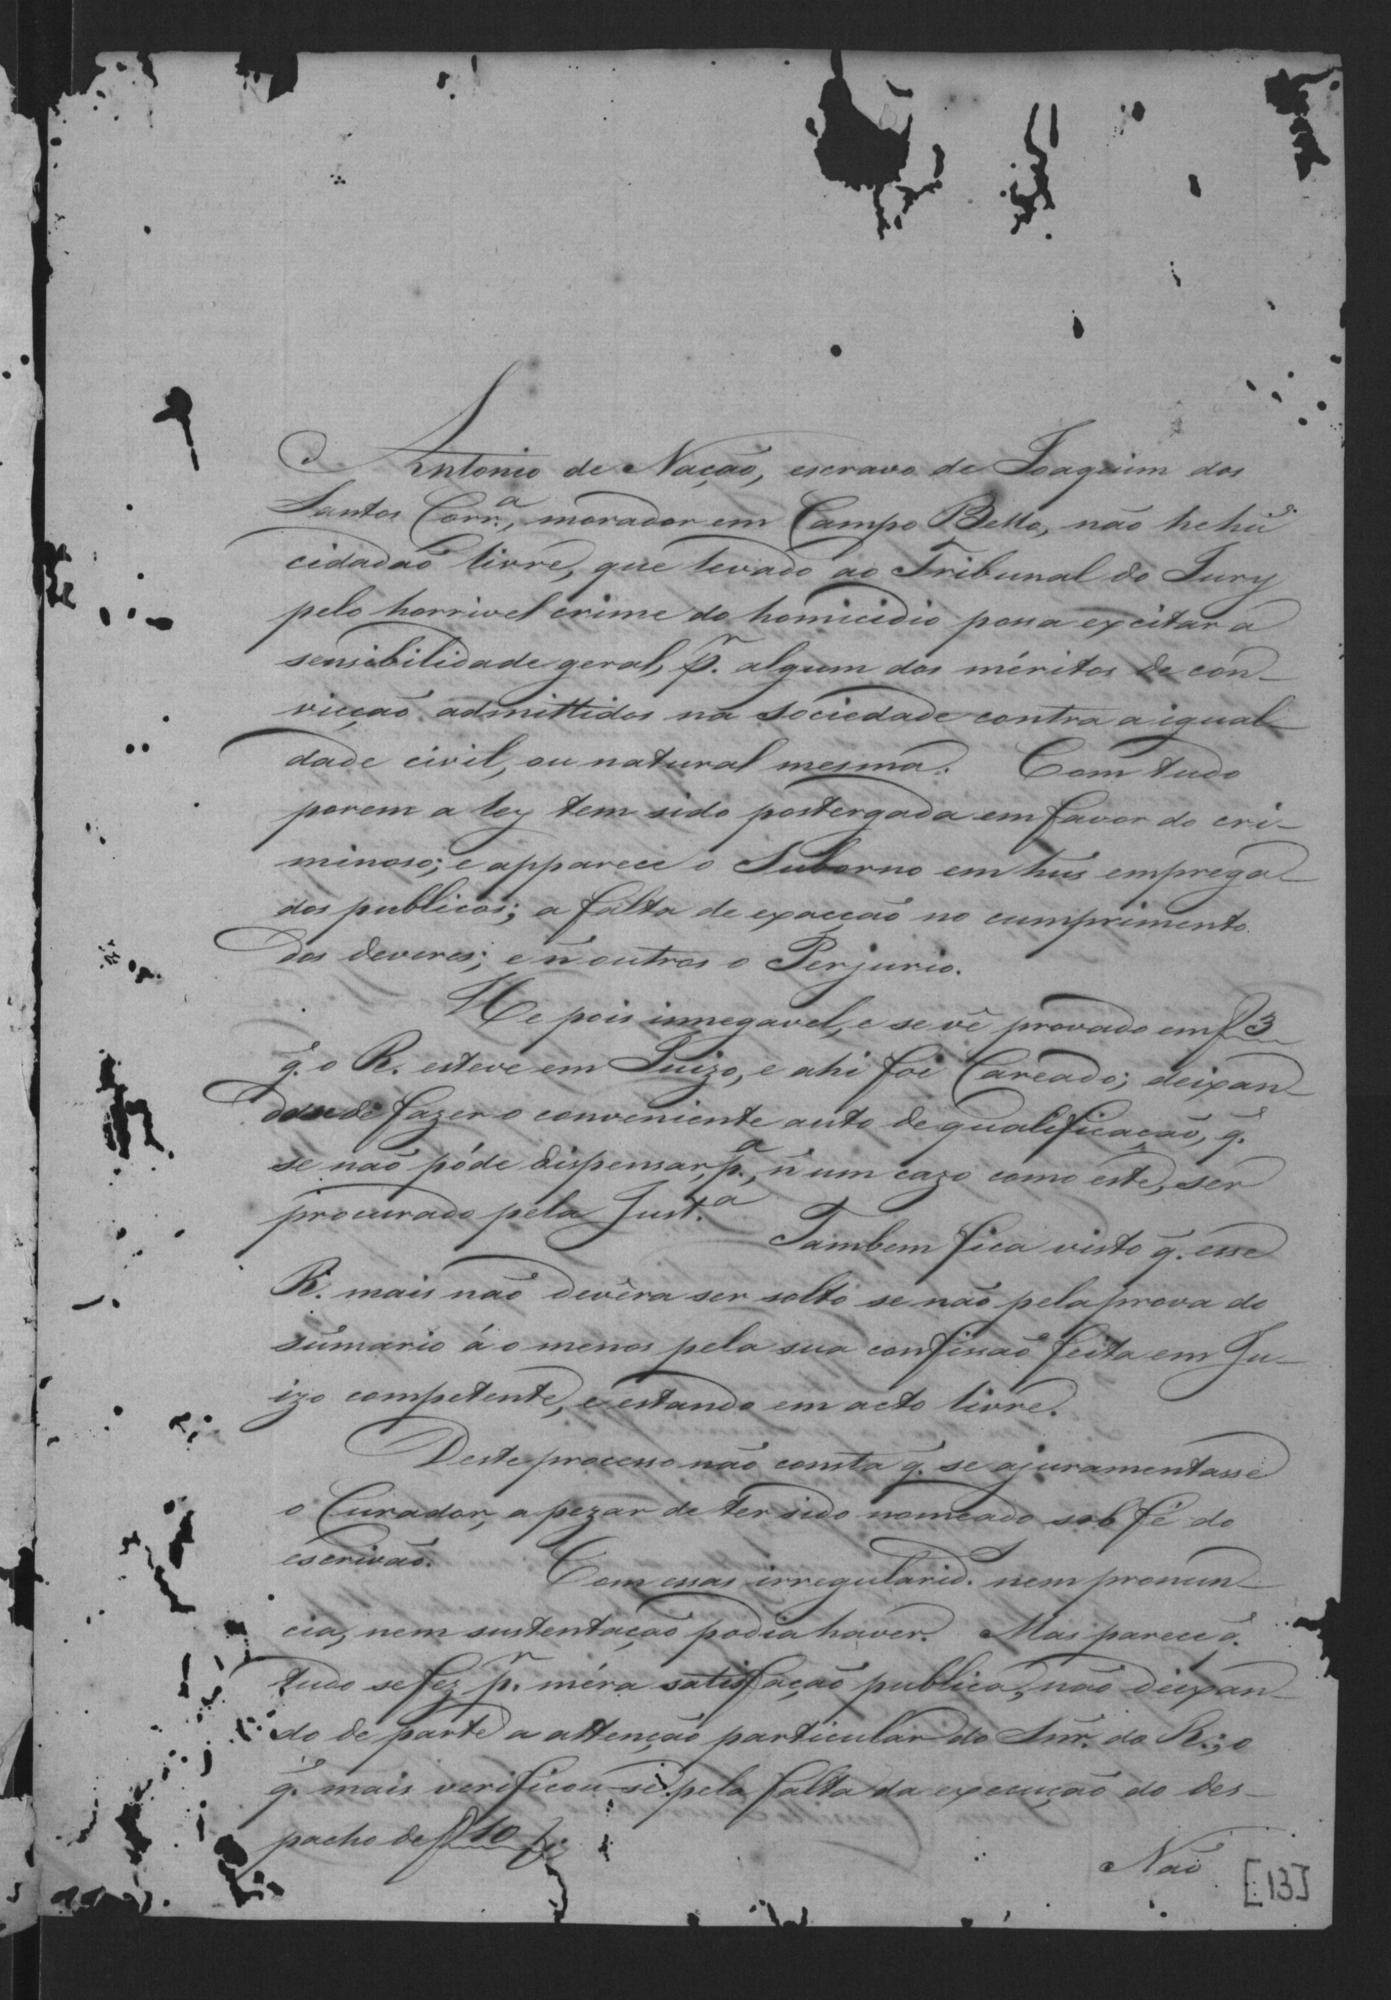 Antonio de Nação, escravo de Joaquim dos
Santos Corr.ª, morador em Campo Bello, não he hũ
cidadaõ livre, que levado ao Tribunal do Jury
pelo horrivel crime do homicidio possa excitar a
sensibilidade geral, p.r algum dos méritos de con-
vicçaõ admittidos na sociedade contra a igual-
dade civil, ou natural mesma. Com tudo
porem a ley tem sido postergada em favor do cri-
minoso; e apparece o Suborno em hũs emprega-
dos publicos; a falta de exacçaõ no cumprimento
dos deveres; e n'outros o Perjurio.
He pois innegavel, e se vê provado em f 3
q̃. o R. esteve em Juizo, e ahi foi Careado; deixan-
dose de fazer o conveniente auto de qualificaçaõ, q̃.
se naõ póde dispensar, p.ª, n'um cazo como este, ser
procurado pela Just.ª Tambem fica visto q̃. esse
R. mais naõ devêra ser solto se naõ pela prova do
sumario á o menos pela sua confissaõ feita em Ju-
izo competente, e estando em acto livre.
Deste processo naõ consta q̃. se ajuramentasse
o Curador, a pezar de ter sido nomeado sob fé do
escrivaõ. Com essas irregularid. nem pronun-
cia, nem sustentaçaõ podia haver. Mas parece q̃.
tudo se fez p.r méra satisfaçaõ publica, naõ deixan-
do de parte a attençaõ particular do Snr. do R.; o
q̃. mais verificou-se pela falta da execuçaõ do des-
pacho de f 10
Naõ
[13]